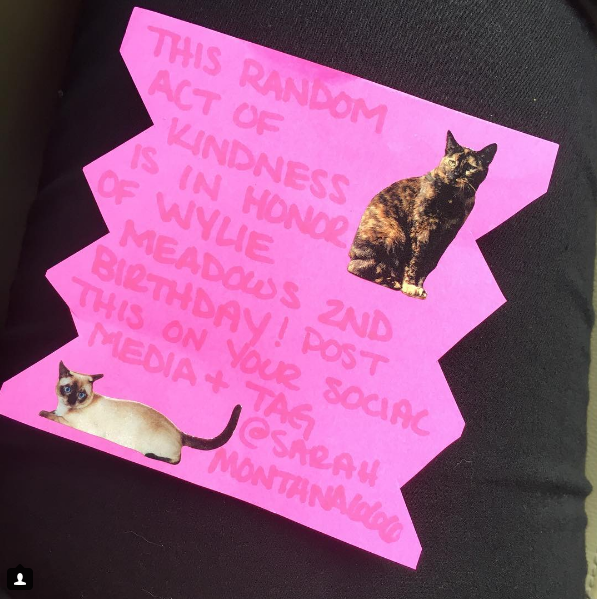 THIS RANDOM
ACT OF
KINDNESS
IS IN HONOR
OF WYLIE
MEADOWS 2ND
BIRTHDAY! POST
THIS ON YOUR SOCIAL
MEDIA + TAG
@SARAH
MONTANA666